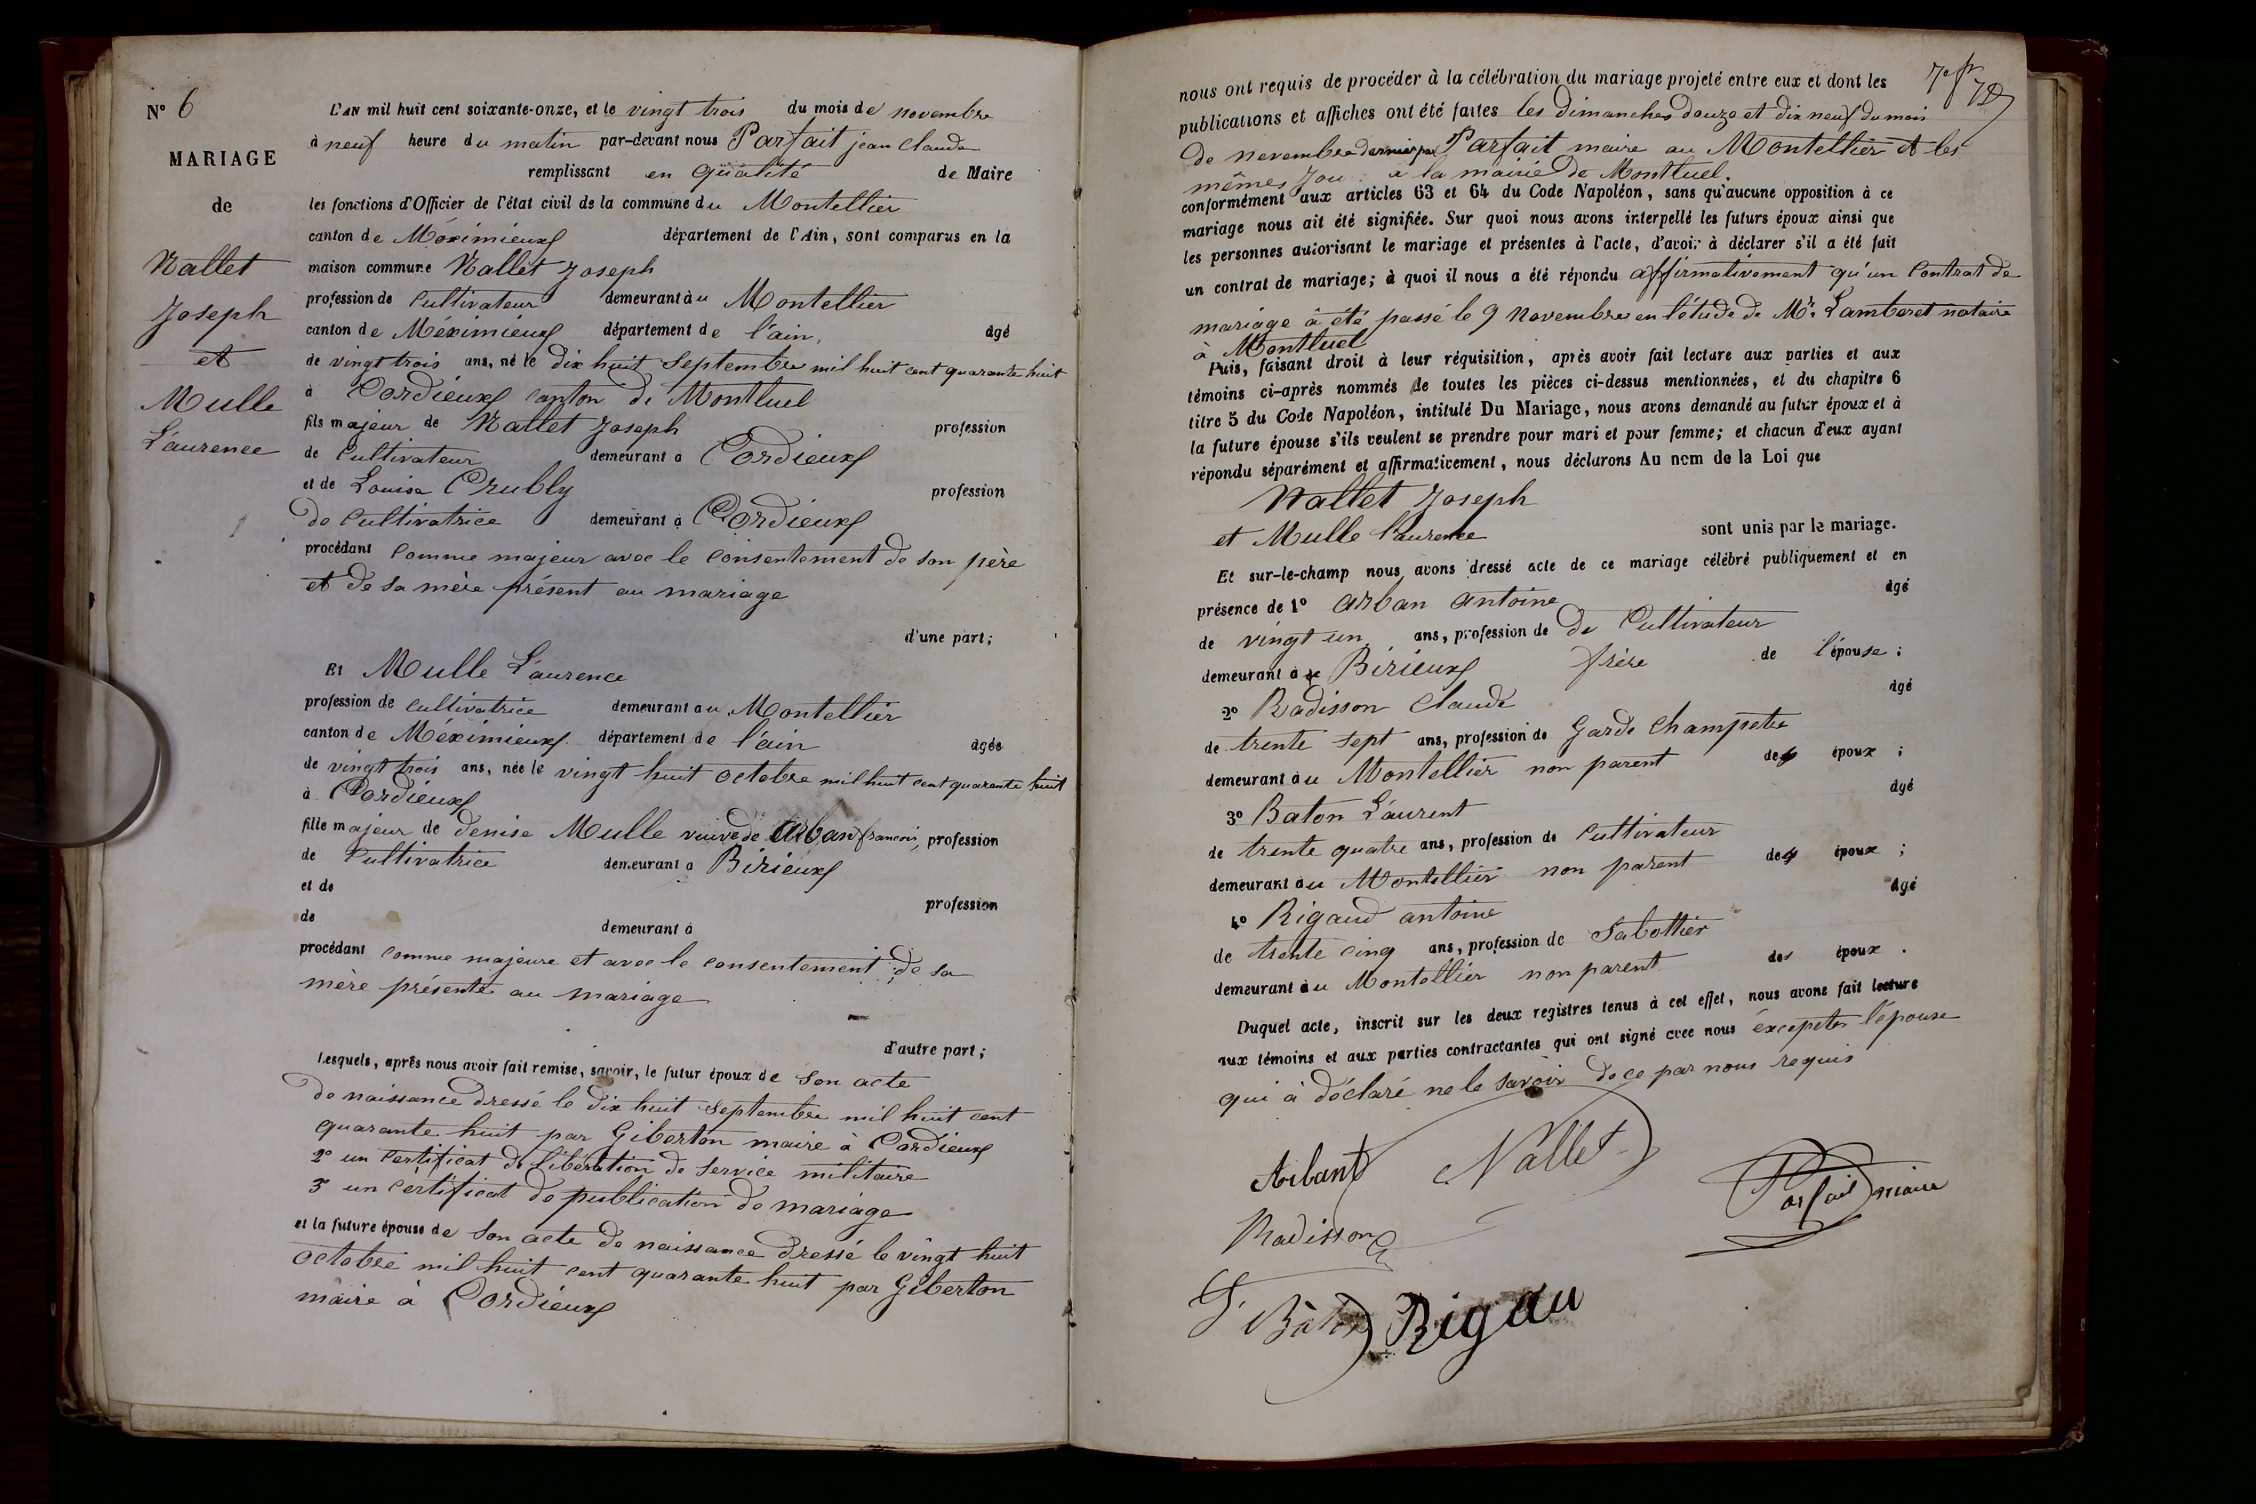 N° 6
MARIAGE
de
Nallet
Joseph
et
Mulle
Laurence
L'AN mil huit cent soixante-onze, et le vingt trois du mois de novembre
à neuf heure du matin par-devant nous Parfait jean Claude
remplissant en qualité de Maire
les fonctions d'Officier de l'état civil de la commune du Montellier
canton de Méximieux département de l'Ain, sont comparus en la
maison commune Nallet Joseph
profession de Cultivateur demeurant au Montellier
canton de Méximieux département de l'ain, âgé
de vingt trois ans, né le dix huit Septembre mil huit cent quarante huit
à Cordieux canton de Montluel
fils majeur de Nallet Joseph profession
de Cultivateur demeurant à Cordieux
et de Louise Crubly profession
de Cultivatrice demeurant à Cordieux
procédant comme majeur avec le consentement de son père
et de sa mère présent au mariage
d'une part;
Et Mulle Laurence
profession de cultivatrice demeurant au Montellier
canton de Méximieux département de l'ain âgée
de vingt trois ans, née le vingt huit octobre mil huit cent quarante huit
à Cordieux
fille majeur de denise Mulle veuve de Arban francois, profession
de Cultivatrice demeurant à Birieux
et de profession
de demeurant à
procédant comme majeure et avec le consentement de sa
mère présente au mariage
d'autre part;
Lesquels, après nous avoir fait remise, savoir, le futur époux de son acte
de naissance dressé le dix huit Septembre mil huit cent
quarante huit par Giberton maire à Cordieux
2° un certificat de libération de service militaire
3° un certificat de publication de mariage
et la future épouse de son acte de naissance dressé le vingt huit
octobre mil huit cent quarante huit par Giberton
maire à Cordieux
nous ont requis de procéder à la célébration du mariage projeté entre eux et dont les
publications et affiches ont été faites les dimanches douze et dix neuf du mois
de novembre dernier par Parfait maire au Montellier et les
mêmes jou à la mairie de Montluel.
conformément aux articles 63 et 64 du Code Napoléon, sans qu'aucune opposition à ce
mariage nous ait été signifiée. Sur quoi nous avons interpellé les futurs époux ainsi que
les personnes autorisant le mariage et présentes à l'acte, d'avoir à déclarer s'il a été fait
un contrat de mariage; à quoi il nous a été répondu affirmativement qu'un Contrat de
mariage à été passé le 9 Novembre en l'étude de Mr. Lamberet notaire
à Montluel
Puis, faisant droit à leur réquisition, après avoir fait lecture aux parties et aux
témoins ci-après nommés de toutes les pièces ci-dessus mentionnées, et du chapitre 6
titre 5 du Code Napoléon, intitulé Du Mariage, nous avons demandé au futur époux et à
la future épouse s'ils veulent se prendre pour mari et pour femme; et chacun d'eux ayant
répondu séparément et affirmativement, nous déclarons Au nom de la Loi que
Nallet Joseph
et Mulle Laurence sont unis par le mariage.
Et sur-le-champ nous avons dressé acte de ce mariage célébré publiquement et en
présence de 1° Arban Antoine âgé
de vingt un ans, profession de de Cultivateur
demeurant à Birieux frère de l'épouse;
2° Radisson Claude âgé
de trente sept ans, profession de Garde Champetre
demeurant au Montellier non parent des époux;
3° Baton Laurent âgé
de trente quatre ans, profession de Cultivateur
demeurant au Montellier non parent des époux;
4° Rigaud antoine âgé
de trente cinq ans, profession de Sabottier
demeurant au Montellier non parent des époux.
Duquel acte, inscrit sur les deux registres tenus à cet effet, nous avons fait lecture
aux témoins et aux parties contractantes qui ont signé avec nous exceptes l'épouse
qui à déclaré ne le savoir de ce par nous requis
Arbant Nallet
Parfait maire
Radisson
Baton Rigau